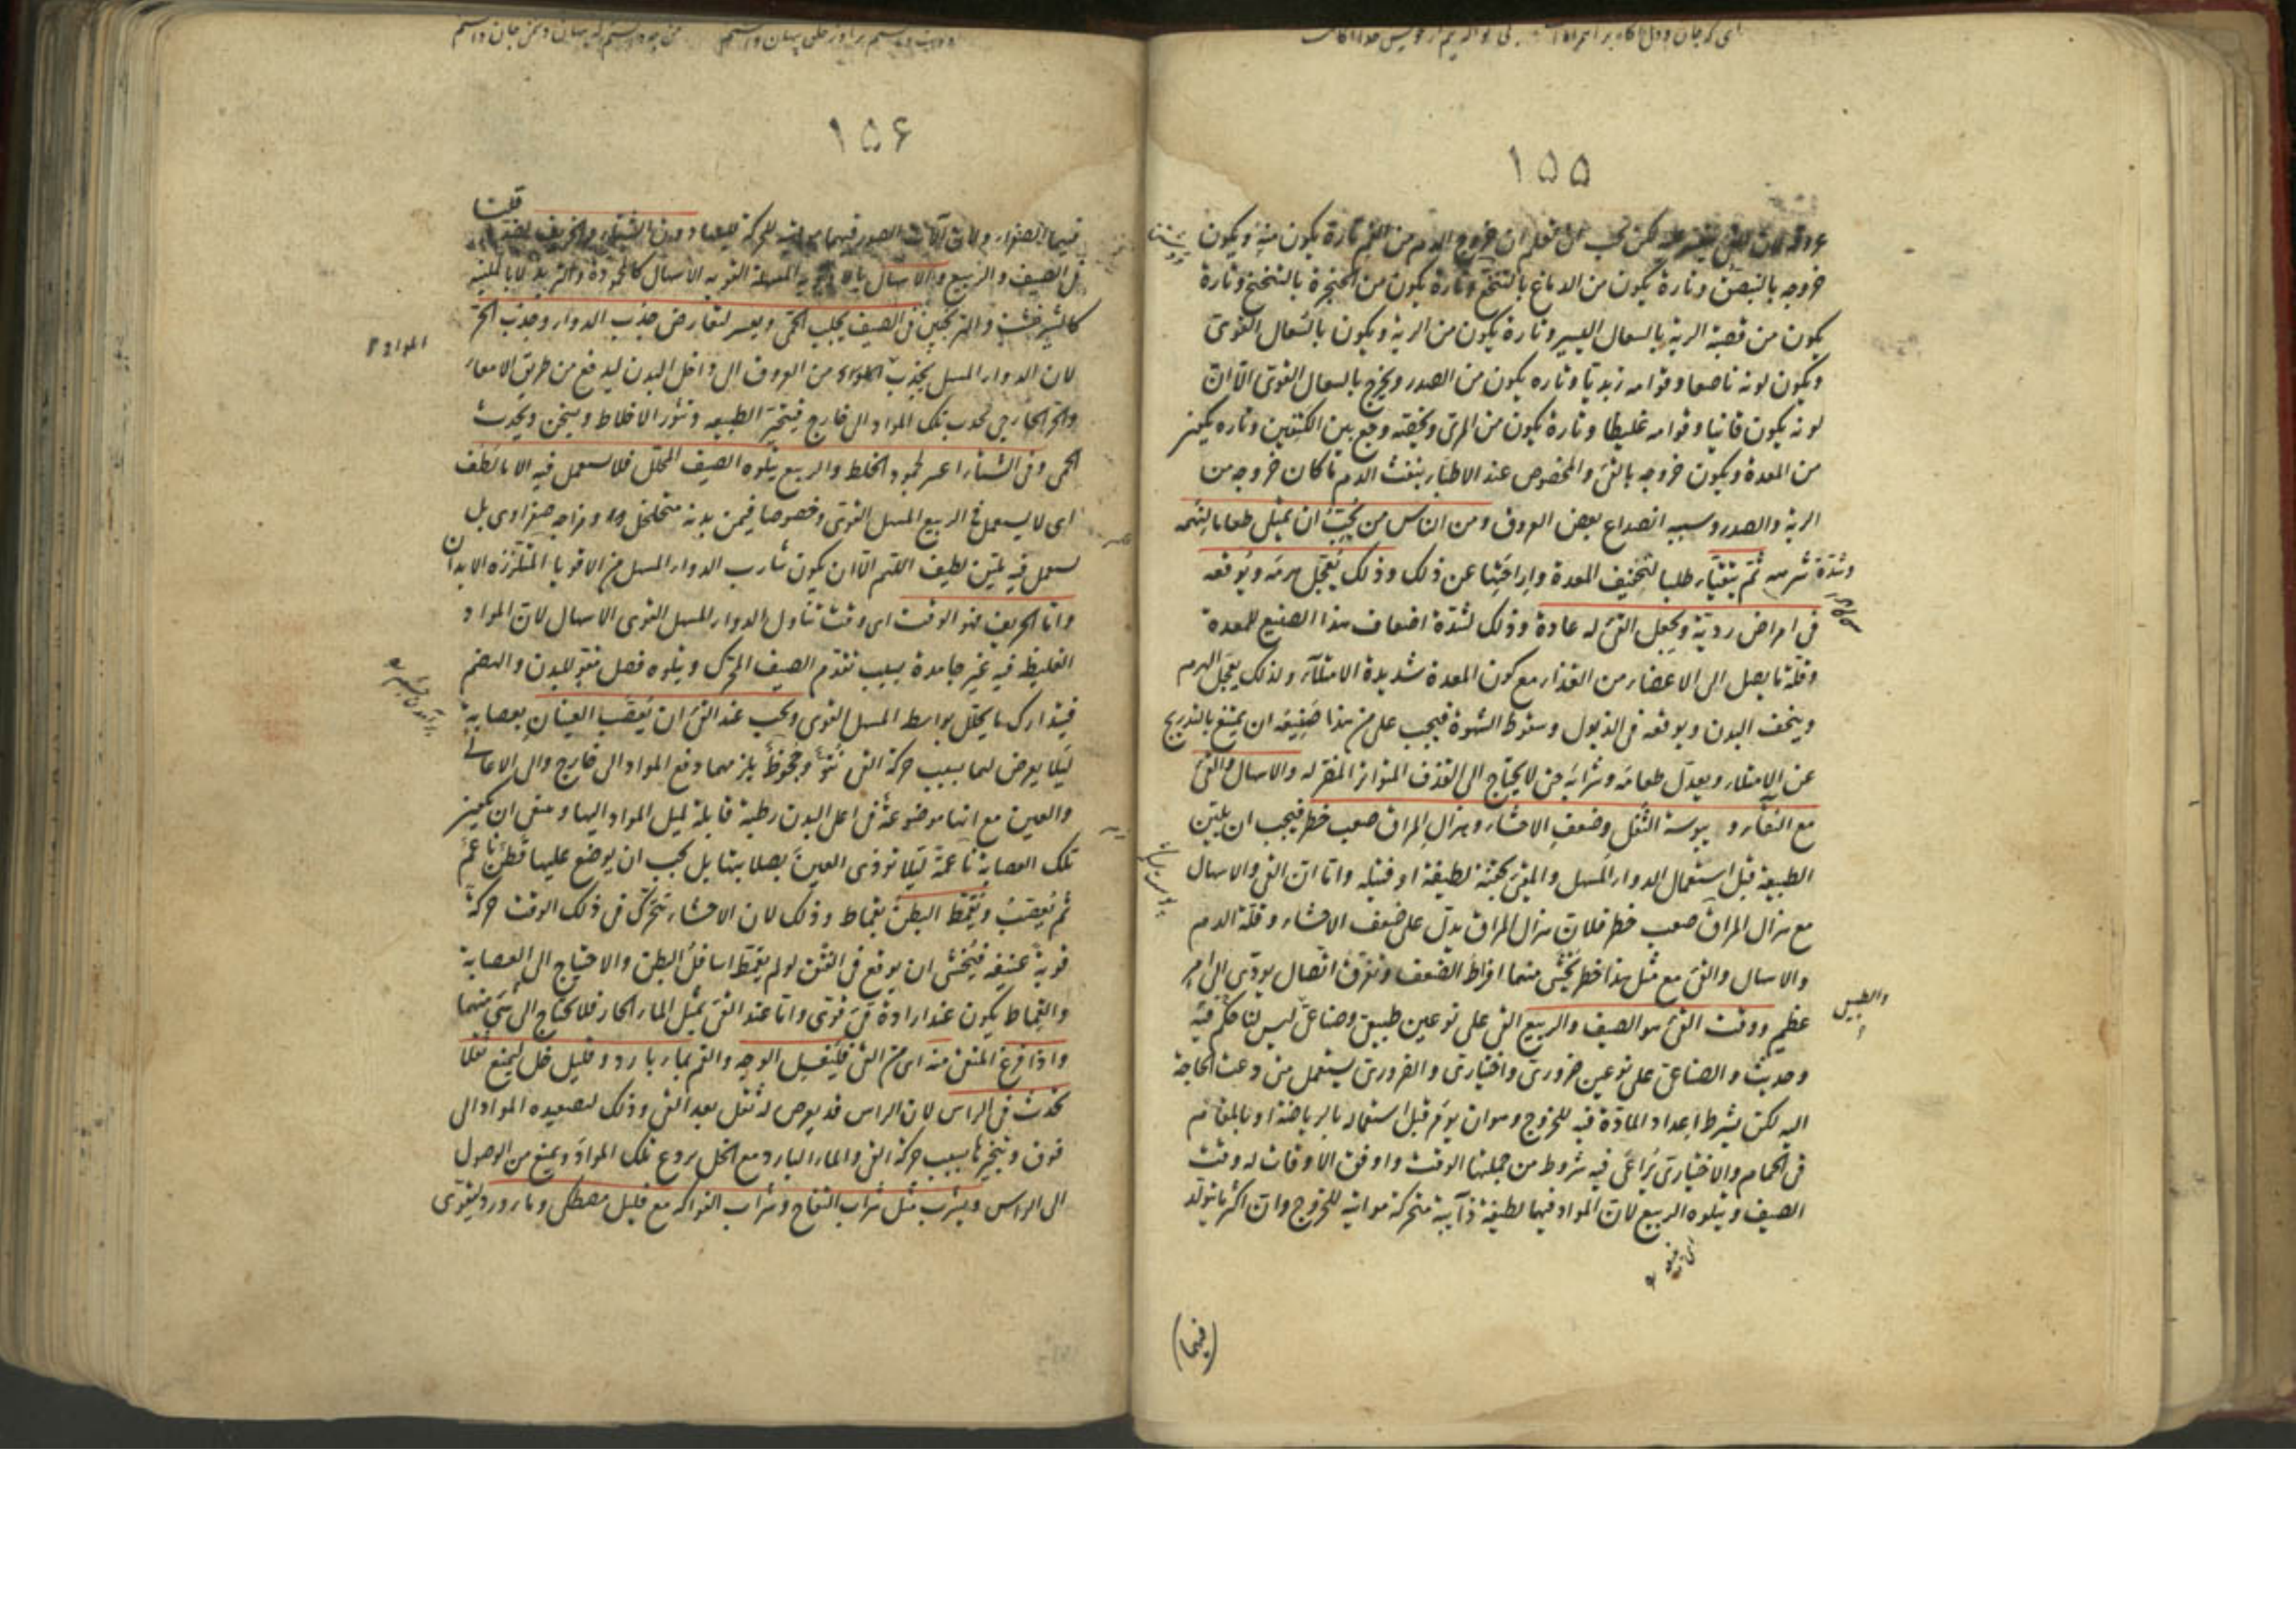 ۱۵۵
يجب ان تعلم ان خروج الدم من الفم تارة يكون منه ويكون
خروجه بالتبصق وتارة يكون من الدماغ بالتنخع وتارة يكون من الحنجرة بالتنحنح وتارة
يكون من قصبة الرية بالسعال اليسير وتارة يكون من الرية ويكون بالسعال القوى
ويكون لونه ناصعا وقوامه زبديا وتاره يكون من الصدر ويخرج بالسعال القوى الا ان
لونه يكون قانيا وقوامه غليظا وتارة يكون من المرئ ويخصه وجع بين الكتفين وتاره يكون
من المعدة ويكون خروجه بالقئ والمخصوص عند الاطباء بنفث الدم ما كان خروجه من
الرية والصدر وسببه انصداع بعض العروق ومن الناس من يحب ان يمتلى طعاما لنهمه
وشدة شرهه ثم يتقيأ طلبا لتخفيف المعدة واراحتها عن ذلك وذلك يعجل هرمه ويوقعه
فى امراض ردية ويجعل القئ له عادة وذلك لشدة اضعاف هذا الصنيع للمعدة
وقلة ما يصل الى الاعضاء من الغذاء مع كون المعدة شديدة الامتلاء ولذلك يعجل الهرم
وينحف البدن ويوقعه فى الذبول وسقوط الشهوة فيجب على من هذا صنيعه ان يمتنع بالتدريج
عن الامتلاء ويعدل طعامه وشرابه حتى لا يحتاج الى القذف المتواتر المضر له والاسهال والقئ
مع النقاء ويبوسة الثفل وضعف الاحشاء وهزال المراق صعب خطر فيجب ان يلين
الطبيعة قبل استعمال الدواء المسهل والمقئ بحقنة لطيفة او فتيله واما ان القئ والاسهال
مع هزال المراق صعب خطر فلان هزال المراق يدل على ضعف الاحشاء وقلة الدم
والاسهال والقئ مع مثل هذا خطر يخشى منهما افراط الضعف وتفرق اتصال يودى الى امر
عظيم ووقت القئ هو الصيف والربيع القئ على نوعين طبيعى وصناعى ليس لنا حكم فيه
وحديث والصناعى على نوعين ضرورى واختيارى والضرورى يستعمل متى دعت الحاجة
اليه لكن بشرط اعداد المادة فيه للخروج وهو ان يوم قبل استعماله بالرياضة او بالمقام
فى الحمام والاختيارى يراعى فيه شروط من جملتها الوقت واوفق الاوقات له وقت
الصيف ويتلوه الربيع لان المواد فيهما لطيفة ذايبة متحركة مواتية للخروج وان اكثر ما يتولد
(فيهما)
۱۵۶
فيهما الصفراء
فى الصيف والربيع والاسهال بالادوية المسهلة القويه الاسهال كالمحمودة والتربد لا بالملينه
كالشيرخشت والترنجبين فى الصيف يجلب الحمى ويعسر لتعارض جذب الدواء وجذب الحر
لان الدواء المسهل يجذب المواد من العروق الى داخل البدن ليدفع من طريق الامعاء
والحر الخارجى يجذب تلك المواد الى خارج فيتحير الطبيعه وتثور الاخلاط ويسخن ويحدث
الحمى وفى الشتاء اعسر لجمود الخلط والربيع يتلوه الصيف المحلل فلا يستعمل فيه الا ما لطف
اى لا يستعمل فى الربيع المسهل القوى وخصوصا فيمن بدنه متخلخل ومزاجه صفراوى بل
يستعمل فيه تليين لطيف اللهم الا ان يكون شارب الدواء المسهل من الاقويا المتلززه الابدان
واما الخريف فهو الوقت اى وقت تناول الدواء المسهل القوى الاسهال لان المواد
الغليظة فيه غير جامدة بسبب تقدم الصيف المحرك ويتلوه فصل مقو للبدن والهضم
فيتدارك ما يحلل بواسطة المسهل القوى ويجب عند القئ ان يعصب العينان بعصابة
ليلا يعرض لهما بسبب حركة القئ نتوء وجحوظ يلزمهما دفع المواد الى خارج والى الاعالى
والعين مع انها موضوعة فى اعلى البدن رطبة قابلة لميل المواد اليها وينبغى ان يكون
تلك العصابة ناعمة ليلا توذى العين بصلابتها بل يجب ان يوضع عليها قطن ناعم
ثم يعصب ويقمط البطن بقماط وذلك لان الاحشاء يتحرك فى ذلك الوقت حركة
قوية عنيفه فيخشى ان يوقع فى الفتق لو لم يقمط اسافل البطن والاحتياج الى العصابة
والقماط يكون عند ارادة قئ قوى واما عند القئ بمثل الماء الحار فلا يحتاج الى شئ منهما
واذا فرغ المتقئ منه اى من القئ فليغسل الوجه والفم بماء بارد وقليل خل ليمنع ثقلا
يحدث فى الراس لان الراس قد يعرض له ثقل بعد القئ وذلك لتصعيده المواد الى
فوق وتبخيرها بسبب حركة القئ والماء البارد مع الخل يردع تلك المواد ويمنع من الوصول
الى الراس ويشرب مثل شراب التفاح وشراب الفواكه مع قليل مصطكى وماء ورد ليقوى
المواد